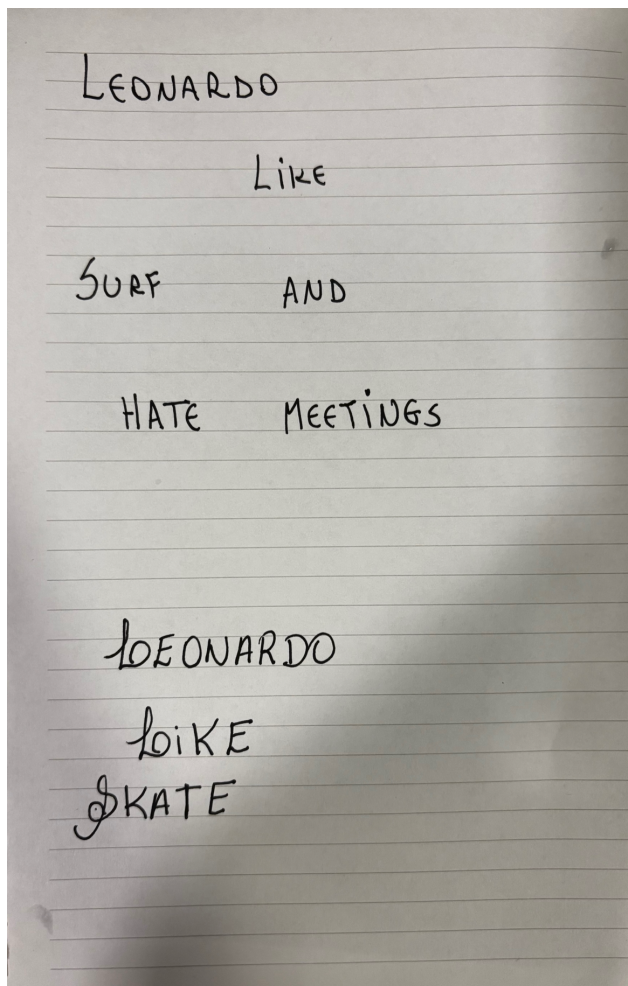 LEONARDO
LiKE
SURF AND
HATE MEETiNGS
LEONARDO
LiKE
SKATE